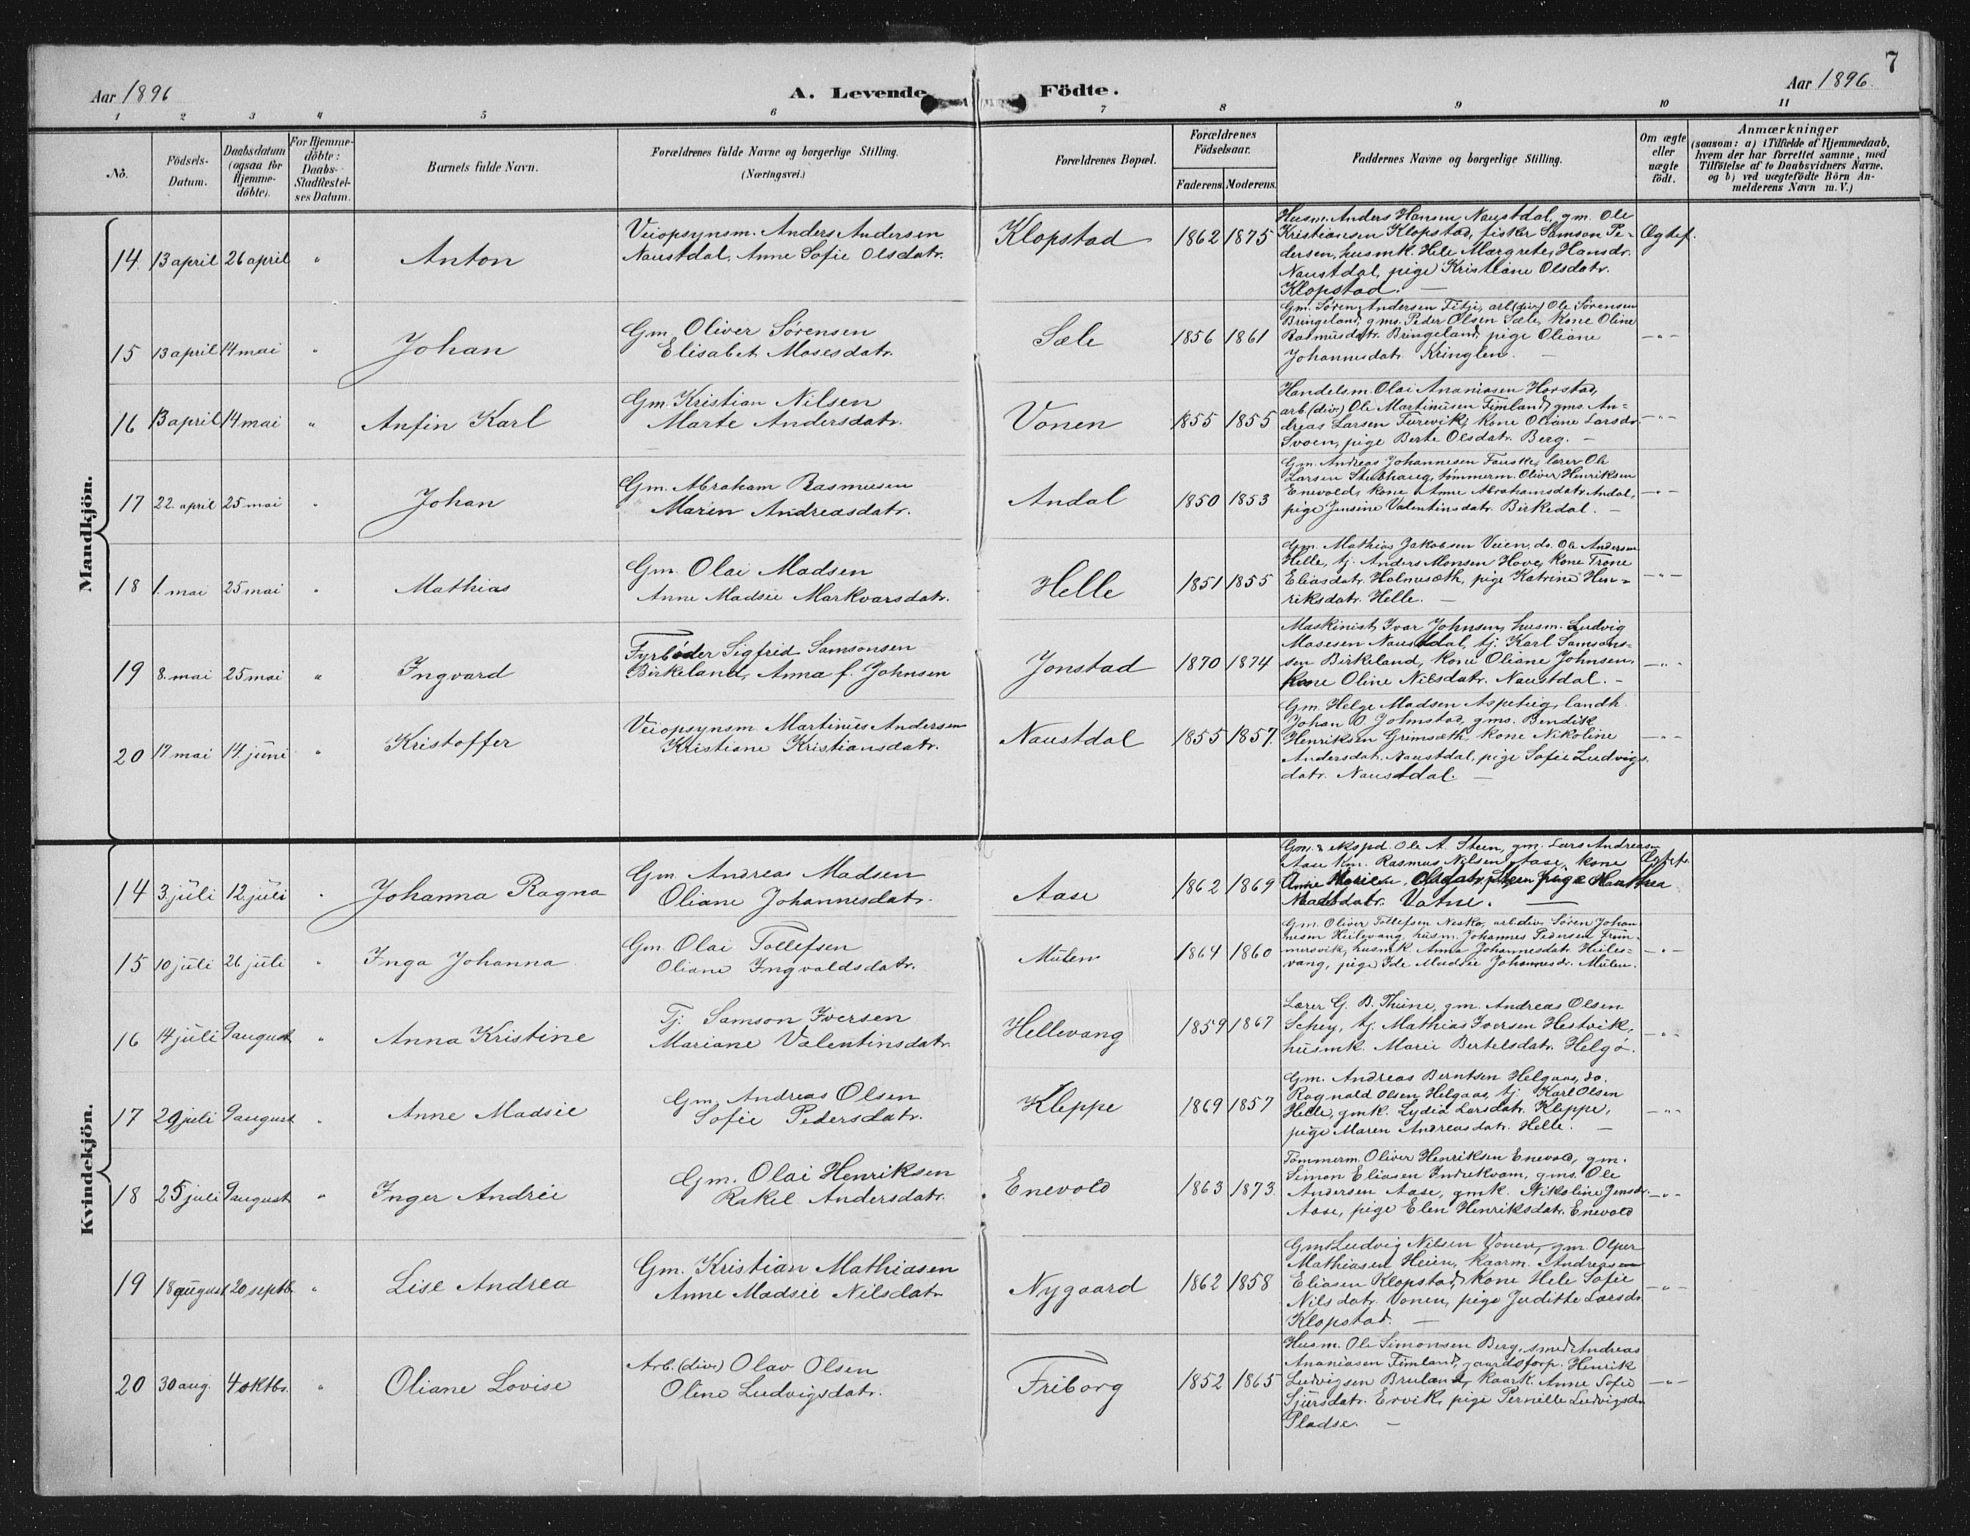 7
Aar 1896 A. Levende Födte. Aar 1896
1 2 3 4 5 6 7 8 9 10 11
No.
Födsels-
Datum.
Daabsdatum
(ogsaa for
Hjemme-
döbte).
For Hjemme-
döbte:
Daabs-
Stadfæstel-
ses Datum.
Barnets fulde Navn.
Forældrenes fulde Navne og borgerlige Stilling.
(Næringsvei.)
Forældrenes Bopæl.
Forældrenes
Födselsaar.
Faderens. Moderens.
Faddernes Navne og borgerlige Stilling.
Om ægte
eller
uægte
födt.
Anmærkninger
(saasom: a) i Tilfælde af Hjemmedaab,
hvem der har forrettet samme, med
Tilföielse af to Daabsvidners Navne,
og b) ved uægtefödte Börn An-
melderens Navn m. V.)
Mandkjön.
14. 13 april 26 april " Anton
Veiopsynsm. Anders Andersen
Naustdal, Anne Sofie Olsdatr.
Klopstad 1862 1875
Husm. Anders Hansen Naustdal, gm. Ole
Kristiansen Klopstad, fisker Samson Pe-
dersen, husmk. Hele Margrete Hansdr.
Naustdal, pige Kristiane Olsdatr.
Klopstad. —
Ægtef.
15 13 april 14 mai " Johan
Gm. Oliver Sørensen
Elisabet Mosesdatr.
Sæle 1856 1861
Gm. Søren Andersen Fitje, arb(div) Ole Sørensen
Bringeland, gms. Peder Olsen Sæle, kone Oline
Rasmusdatr. Bringeland, pige Oliane
Johannesdatr Kringlen. —
—"—
16 13 april 14 mai " Anfin Karl
Gm. Kristian Nilsen
Marte Andersdatr.
Vonen 1855 1855
Handelsm. Olai Ananiasen Horstad,
arb (div) Ole Martinusen Fimland, gms. An-
dreas Larsen Furevik, kone Oliane Larsdr.
Svoen, pige Berte Olsdatr. Berg. —
—"—
17 22. april 25 mai " Johan
Gm. Abraham Rasmusen
Maren Andreasdatr.
Andal 1850 1853
Gm. Andreas Johannesen Fauske, lærer Ole
Larsen Stubhaug, tømmerm. Oliver Henriksen
Enevold, kone Anne Abrahamsdatr. Andal,
pige Jensine Valentinsdatr. Birkedal. —
—"—
18 1. mai 25 mai " Mathias
Gm. Olai Madsen
Anne Madsie Markvarsdatr.
Helle 1851 1855
Gm. Mathias Jakobsen Veien, do. Ole Andersen
Helle, tj. Anders Monsen Hove, kone Trone
Eliasdatr. Holmesæth, pige Katrine Hen-
riksdatr. Helle. —
—"—
19 8. mai 25 mai " Ingvard
Fyrbøder Sigfrid Samsonsen
Birkeland, Anna f. Johnsen
Jonstad 1870 1874
Maskinist Ivar Johnsen, husm. Ludvig
Mosesen Naustdal, tj. Karl Samson-
sen Birkeland, kone Oliane Johnsen,
kone Oline Nilsdatr. Naustdal. —
—"—
20 17 mai 14 juni " Kristoffer
Veiopsynsm Martinus Andersen
Kristiane Kristiansdatr.
Naustdal 1855 1857.
Gm. Helge Madsen Aspeteig, landh.
Johan O. Jolmstad, gms. Bendik
Henriksen Grimsæth, kone Nikoline
Andersdat. Naustdal, pige Sofie Ludvigs
datr. Naustdal. —
—"—
Kvindekjön.
14 3 juli 12 juli " Johanna Ragna
Gm. Andreas Madsen
Oliane Johannesdatr.
Aase 1862 1869
Gm. & ekspd. Ole A. Steen, gm. Lars Andreasen
Aase Km. Rasmus Nilsen Aase, kone
Anne Marie Olsdatr. Steen pige Manthea
Madsdatr. Vatne. —
Ægtef.
15 10 juli 26 juli " Inga Johanna
Gm. Olai Tollefsen
Oliane Ingvaldsdatr.
Mulen 1864 1860
Gm. Oliver Tollefsen Neskø, arb div. Søren Johan-
nesen Heilevang, husm. Johannes Pedersen Trim-
mersvik, husmk. Anna Johannesdatr. Heile-
vang, pige Ide Madsie Johannesdr. Mulen.
—"—
16 14 juli 9 august " Anna Kristine
Tj. Samson Iversen
Mariane Valentinsdatr.
Hellevang 1859 1867
Lærer G. B. Thune, gm. Andreas Olsen
Schey, tj Mathias Iversen Hestvik,
husmk. Marie Bertelsdatr. Helgø.
—"—
17 29 juli 9 august " Anne Madsie
Gm. Andreas Olsen
Sofie Pedersdatr.
Kleppe 1869 1857
Gm. Andreas Berntsen Helgaas, do.
Ragnald Olsen Helgaas, tj. Karl Olsen
Helle, gmk. Lydia Larsdatr. Kleppe,
pige Maren Andreasdatr. Helle. —
—"—
18 25 juli 9 august " Inger Andrie
Gm. Olai Henriksen
Rakel Andersdatr.
Enevold 1863 1873.
Tømmerm. Oliver Henriksen Enevold, gm.
Simon Eliasen Indrekvam, gms. Ole
Andersen Aase, gmk. Nikoline Jensdr.
Aase, pige Elen Henriksdatr. Enevold
—"—
19 18 august 20 septb. " Lise Andrea
Gm. Kristian Mathiasen
Anne Madsie Nilsdatr
Nygaard 1862 1858
Gms Ludvig Nilsen Vonen, gm. Olper
Mathiasen Heien, kaarm. Andreasen
Eliasen Klopstad, kone Hele Sofie
Nilsdatr. Vonen, pige Juditte Larsdr.
Klopstad. —
—"—
20 30 aug. 4 oktbr. " Oliane Lovise
Arb. (div.) Olav Olsen
Oline Ludvigsdatr.
Friborg 1852 1865
Husm. Ole Simonsen Berg, smed Andreas
Ananiasen Fimland, gaardsforp. Henrik
Ludvigsen Bruland, kaark. Anne Sofie
Sjursdatr. Ervik, pige Pernille Ludvigsdr.
Pladse. —
—"—